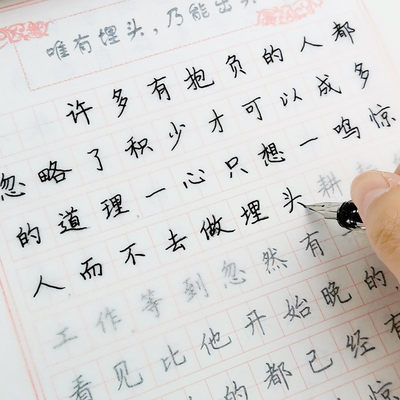 唯有埋头,乃能出头
许多有抱负的人都
忽略了积少才可以成多
的道理一心只想一鸣惊
人而不去做埋头耕
工作等到忽然有
看见比他开始晚的,
的都已经有